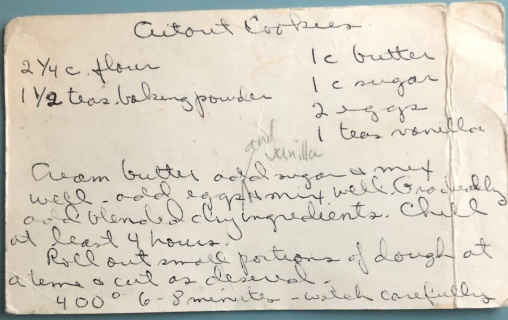 Cutout Cookies
2 1/4 c. flour
1 1/2 teas. baking powder
1 c butter
1 c sugar
2 eggs
1 teas vanilla
and vanilla
Cream butter add sugar & mix
well - add eggs & mix well. Gradually
add blended dry ingredients. Chill
at least 4 hours.
Roll out small portions of dough at
a time & cut as desired -
400° 6-8 minutes - watch carefully